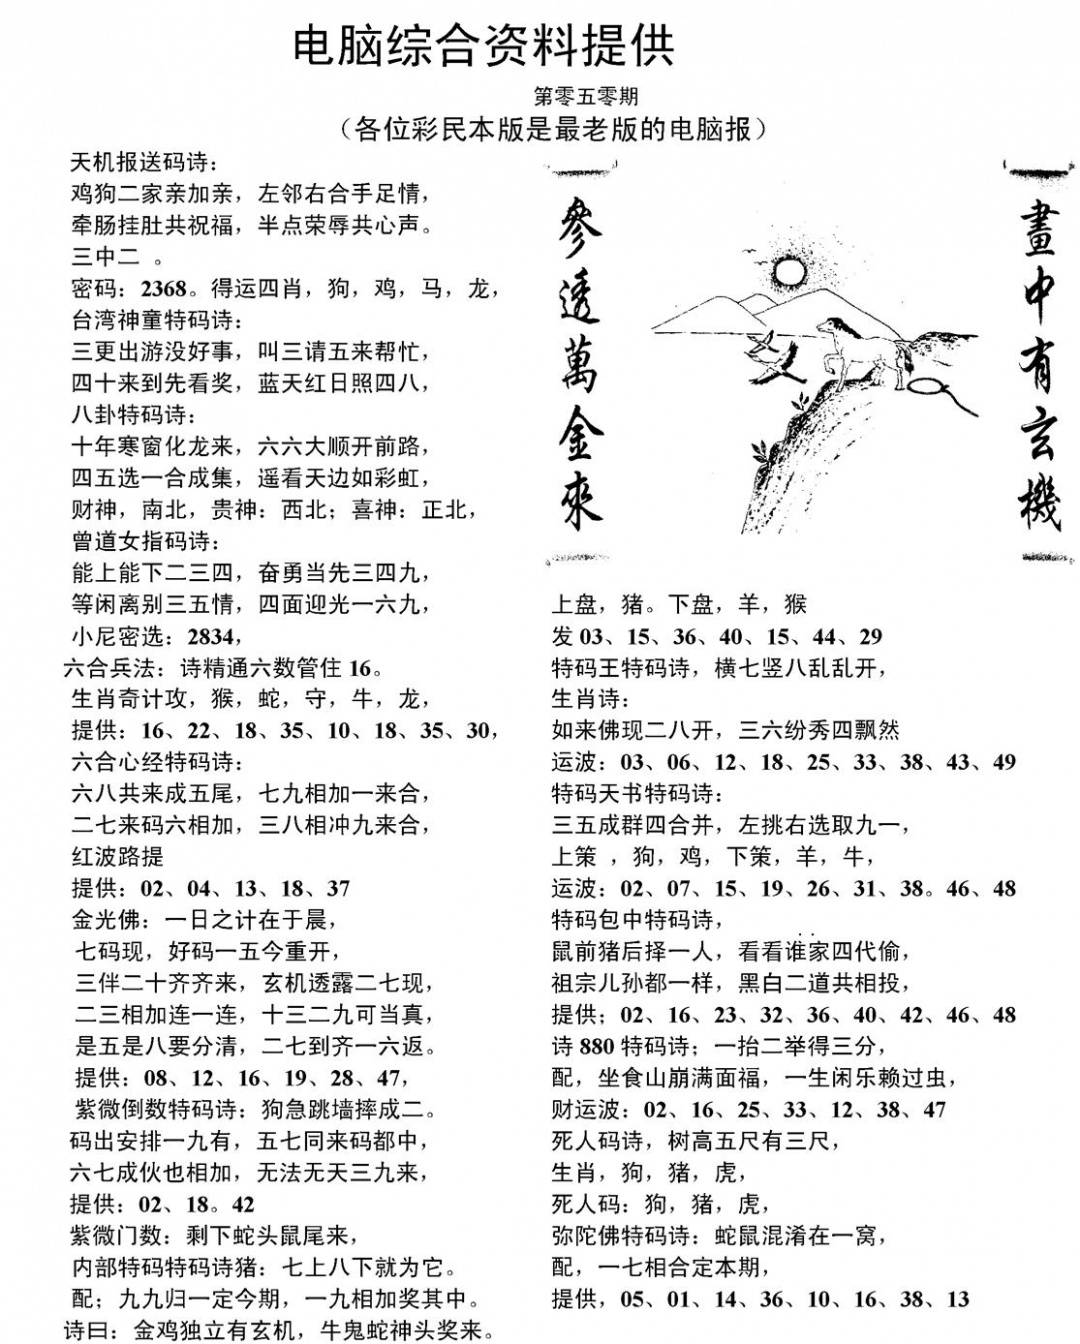 电脑综合资料提供
第零五零期
（各位彩民本版是最老版的电脑报）
天机报送码诗：
鸡狗二家亲加亲，左邻右合手足情，
牵肠挂肚共祝福，半点荣辱共心声。
三中二 。
密码：2368。得运四肖，狗，鸡，马，龙，
台湾神童特码诗：
三更出游没好事，叫三请五来帮忙，
四十来到先看奖，蓝天红日照四八，
八卦特码诗：
十年寒窗化龙来，六六大顺开前路，
四五选一合成集，遥看天边如彩虹，
财神，南北，贵神：西北；喜神：正北，
曾道女指码诗：
能上能下二三四，奋勇当先三四九，
等闲离别三五情，四面迎光一六九，
小尼密选：2834，
六合兵法：诗精通六数管住 16。
生肖奇计攻，猴，蛇，守，牛，龙，
提供：16、22、18、35、10、18、35、30，
六合心经特码诗：
六八共来成五尾，七九相加一来合，
二七来码六相加，三八相冲九来合，
红波路提
提供：02、04、13、18、37
金光佛：一日之计在于晨，
七码现，好码一五今重开，
三伴二十齐齐来，玄机透露二七现，
二三相加连一连，十三二九可当真，
是五是八要分清，二七到齐一六返。
提供：08、12、16、19、28、47，
紫微倒数特码诗：狗急跳墙摔成二。
码出安排一九有，五七同来码都中，
六七成伙也相加，无法无天三九来，
提供：02、18。42
紫微门数：剩下蛇头鼠尾来，
内部特码特码诗猪：七上八下就为它。
配；九九归一定今期，一九相加奖其中。
诗曰：金鸡独立有玄机，牛鬼蛇神头奖来。
畫中有玄機
參透萬金來
上盘，猪。下盘，羊，猴
发 03、15、36、40、15、44、29
特码王特码诗，横七竖八乱乱开，
生肖诗：
如来佛现二八开，三六纷秀四飘然
运波：03、06、12、18、25、33、38、43、49
特码天书特码诗：
三五成群四合并，左挑右选取九一，
上策 ，狗，鸡，下策，羊，牛，
运波：02、07、15、19、26、31、38。46、48
特码包中特码诗，
鼠前猪后择一人，看看谁家四代偷，
祖宗儿孙都一样，黑白二道共相投，
提供；02、16、23、32、36、40、42、46、48
诗 880 特码诗；一抬二举得三分，
配，坐食山崩满面福，一生闲乐赖过虫，
财运波：02、16、25、33、12、38、47
死人码诗，树高五尺有三尺，
生肖，狗，猪，虎，
死人码：狗，猪，虎，
弥陀佛特码诗：蛇鼠混淆在一窝，
配，一七相合定本期，
提供，05、01、14、36、10、16、38、13